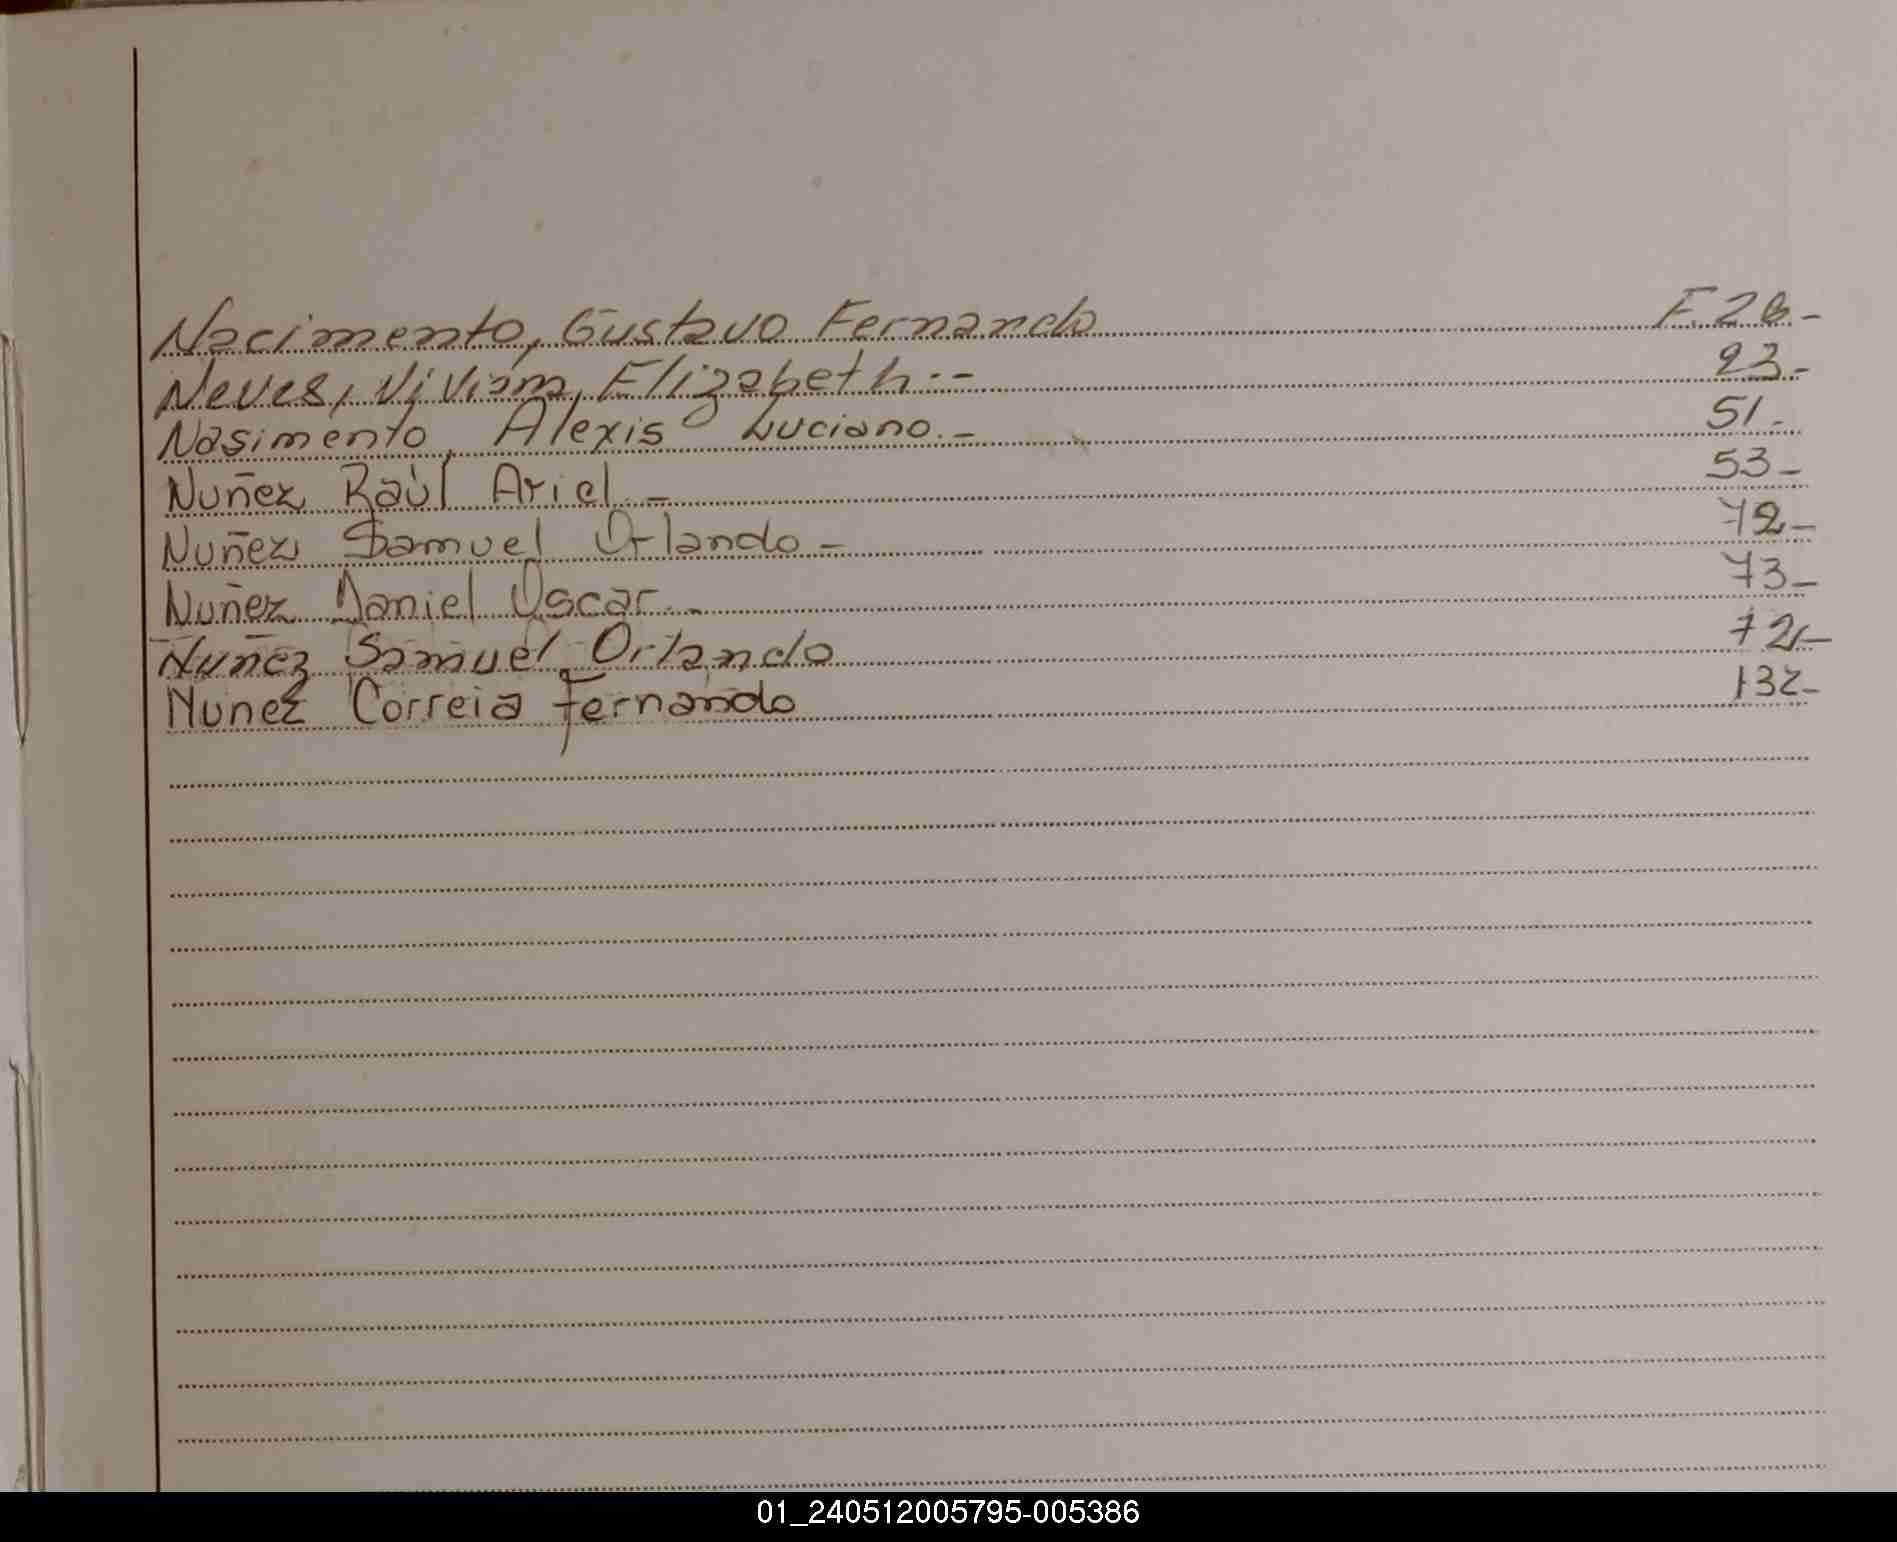 Nacimento, Gustavo Fernando F. 28-
Neves, Viviam Elizabeth.-- 23-
Nasimento, Alexis Luciano.- 51-
Nuñez Raúl Ariel.- 53-
Nuñez Samuel Orlando- 72-
Nuñez Daniel Oscar.- 73-
Nuñez Samuel Orlando 72-
Nunez Correia Fernando 132-
01_240512005795-005386